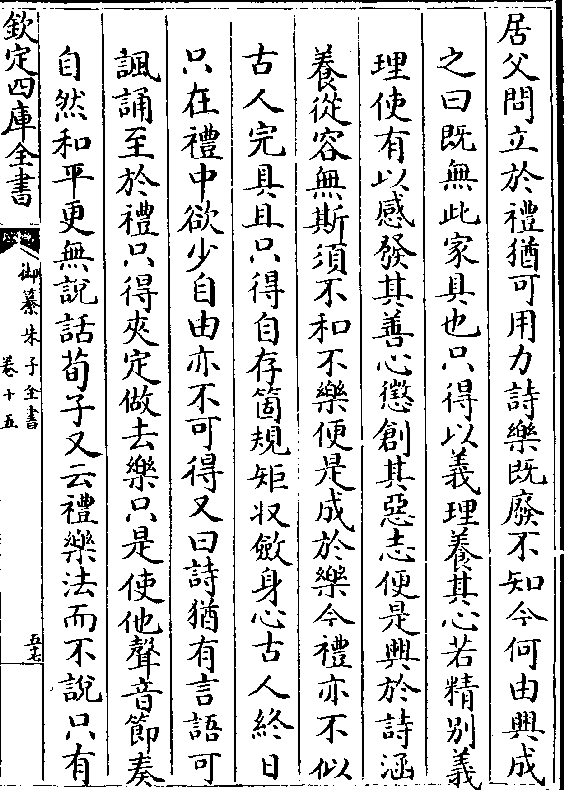 居父問立於禮猶可用力詩樂既廢不知今何由興成
之曰既無此家具也只得以義理養其心若精别義
理使有以感發其善心懲創其惡志便是興於詩涵
養從容無斯須不和不樂便是成於樂今禮亦不似
古人完具且只得自存箇規矩收斂身心古人終日
只在禮中欲少自由亦不可得又曰詩猶有言語可
諷誦至於禮只得夾定做去樂只是使他聲音節奏
自然和平更無說話荀子又云禮樂法而不說只有
欽定四庫全書
御纂朱子全書
卷十五
五七